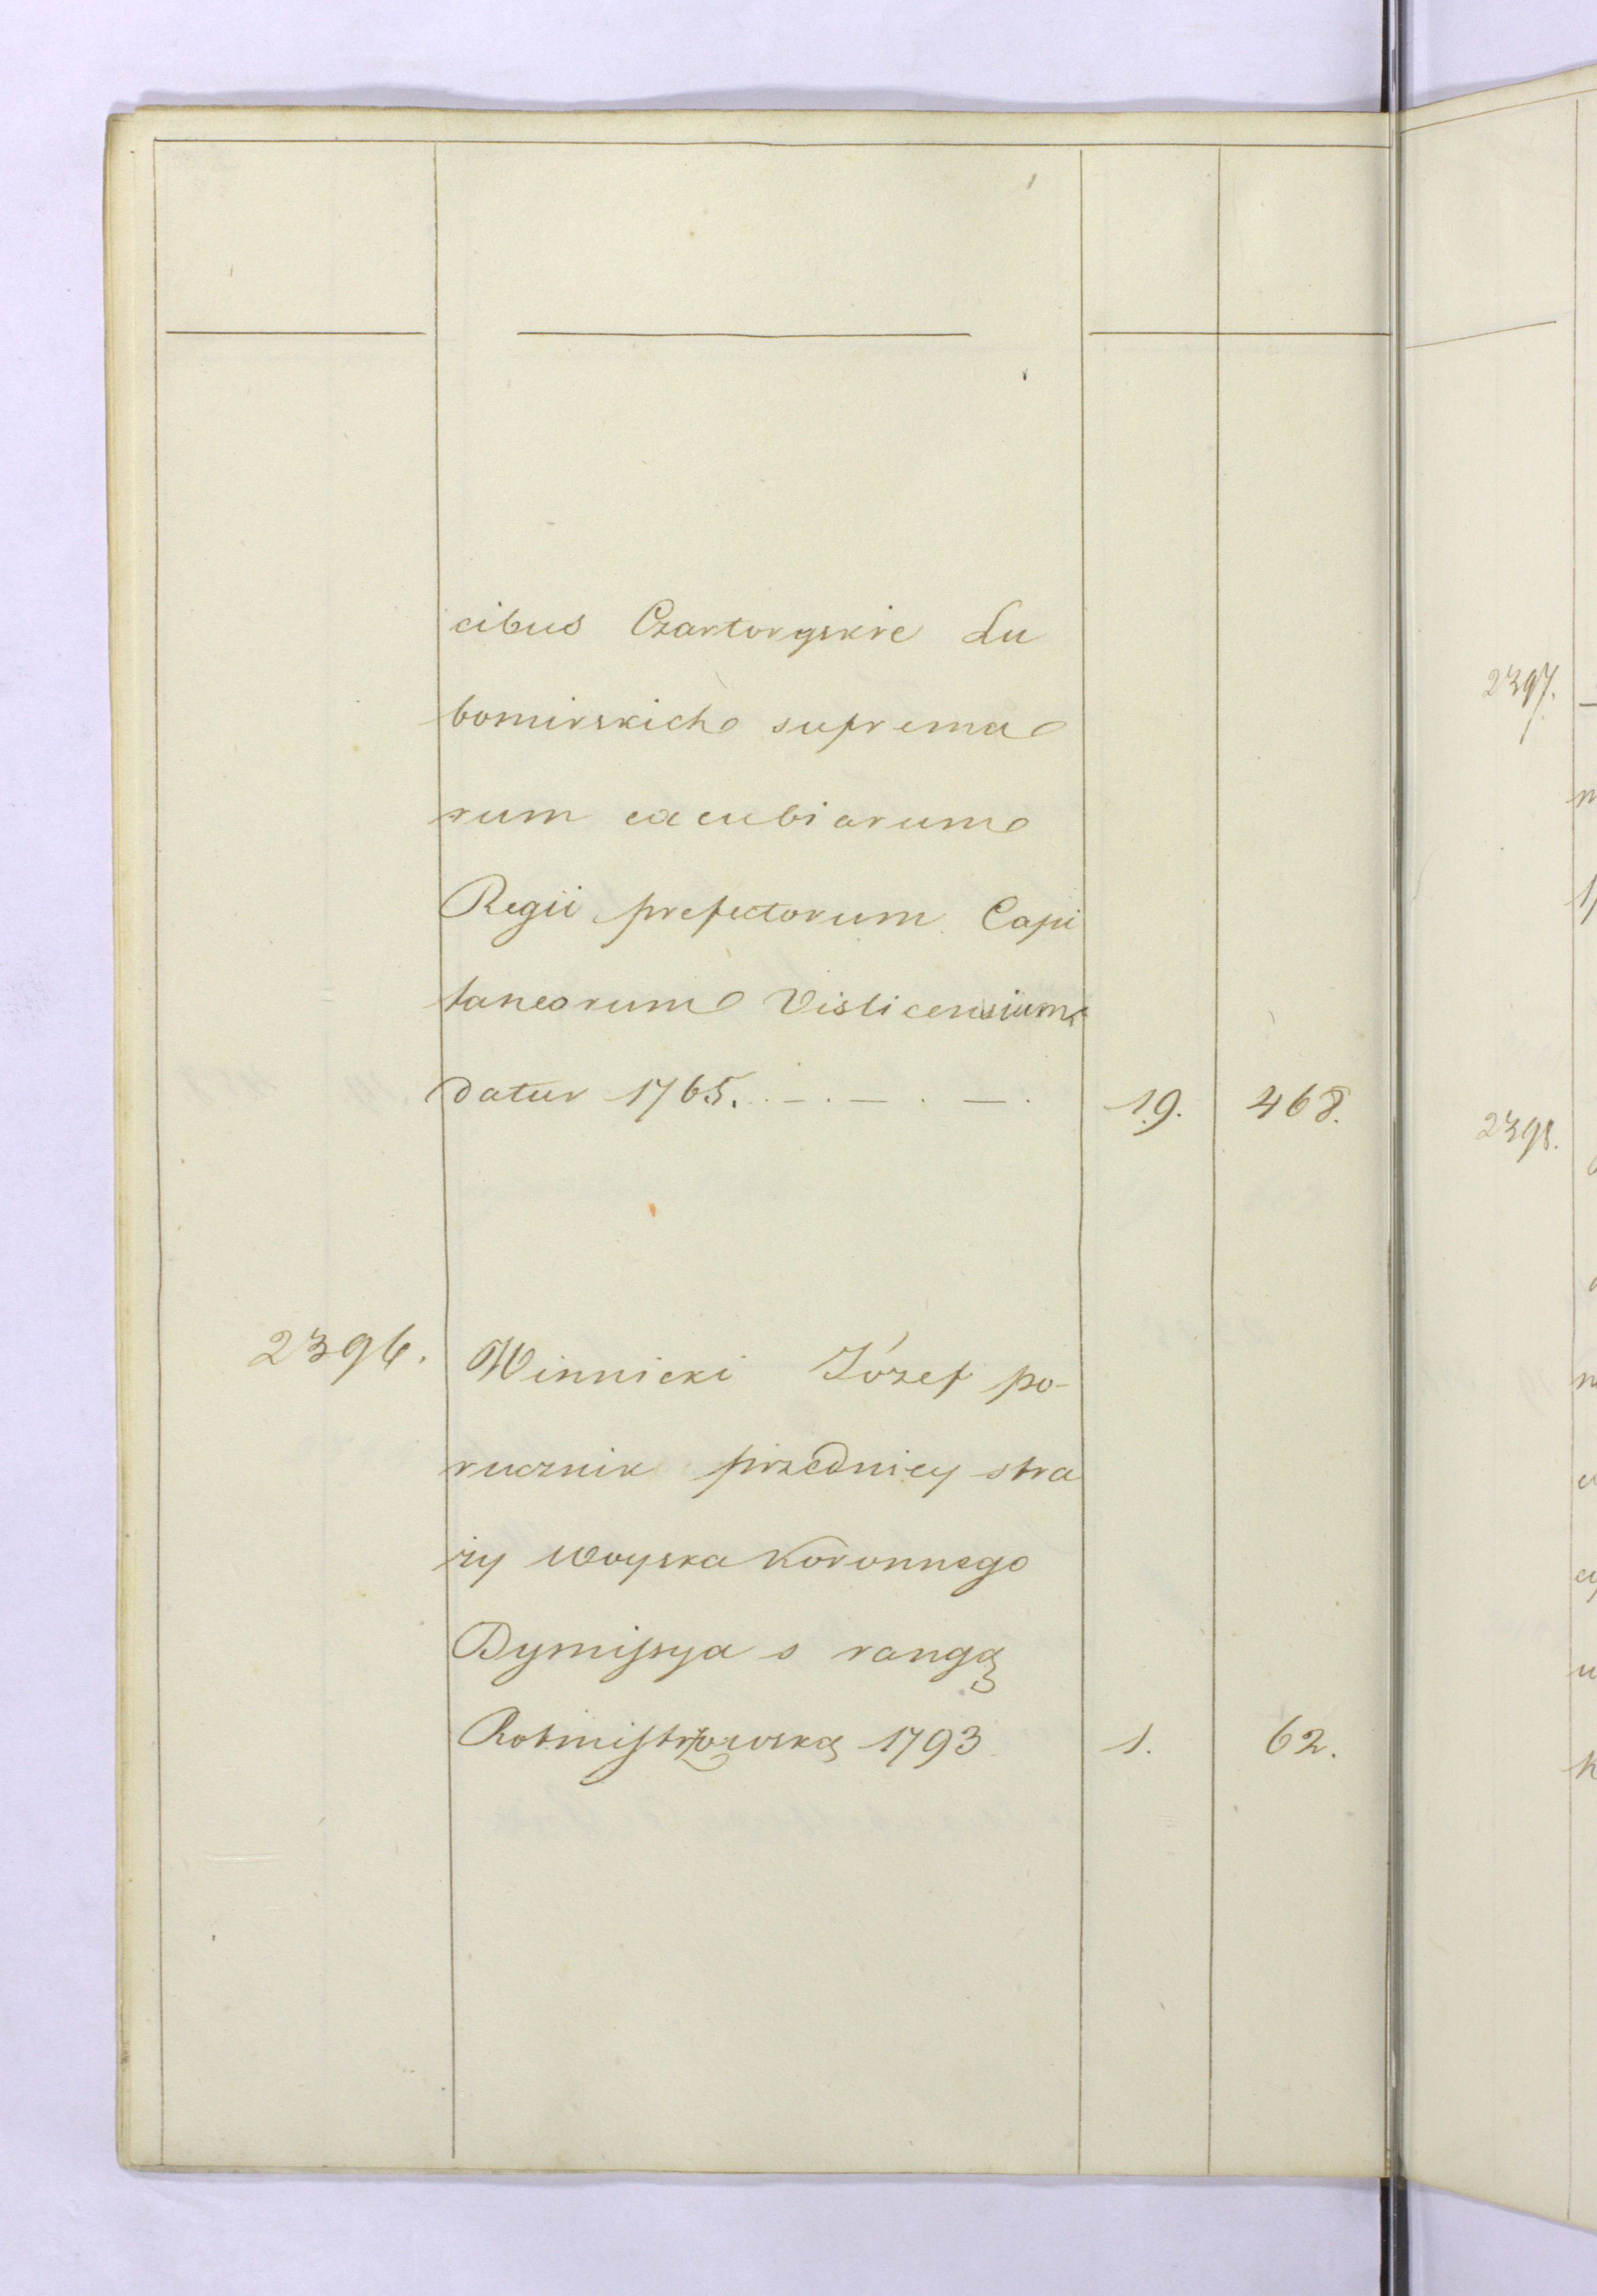 cibus Czartoryskie Lu
bomirskich suprema
rum excubiarum
Regii prefectorum Capi
taneorum Vislicensium
datur 1765. . — . — . — . 19. 468.
2396. Winnicki Józef po-
rucznik przedniey stra
ży woyska Koronnego
Dymissya s rangą
Rotmistrzowską 1793 1. 62.
2397.
2398.